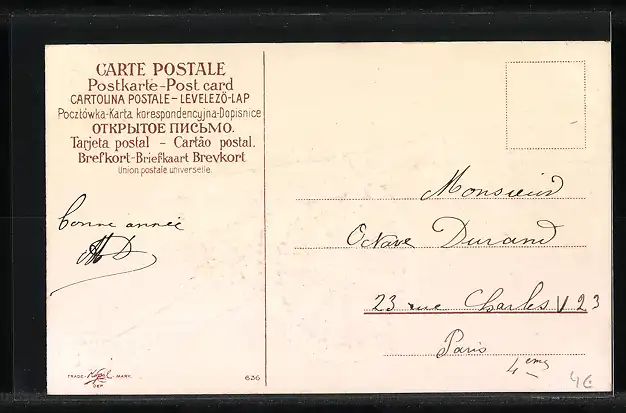 CARTE POSTALE
Postkarte-Post card
CARTOLINA POSTALE-LEVELEZŐ-LAP
Pocztówka-Karta korespondencyjna-Dopisnice
ОТКРЫТОЕ ПИСЬМО.
Tarjeta postal - Cartão postal.
Brefkort-Briefkaart Brevkort
Union postale universelle.
Bonne année
AD
Monsieur
Octave Durand
23 rue Charles V 23
Paris
4eme
TRADE- MARK.
DEP.
636
4€